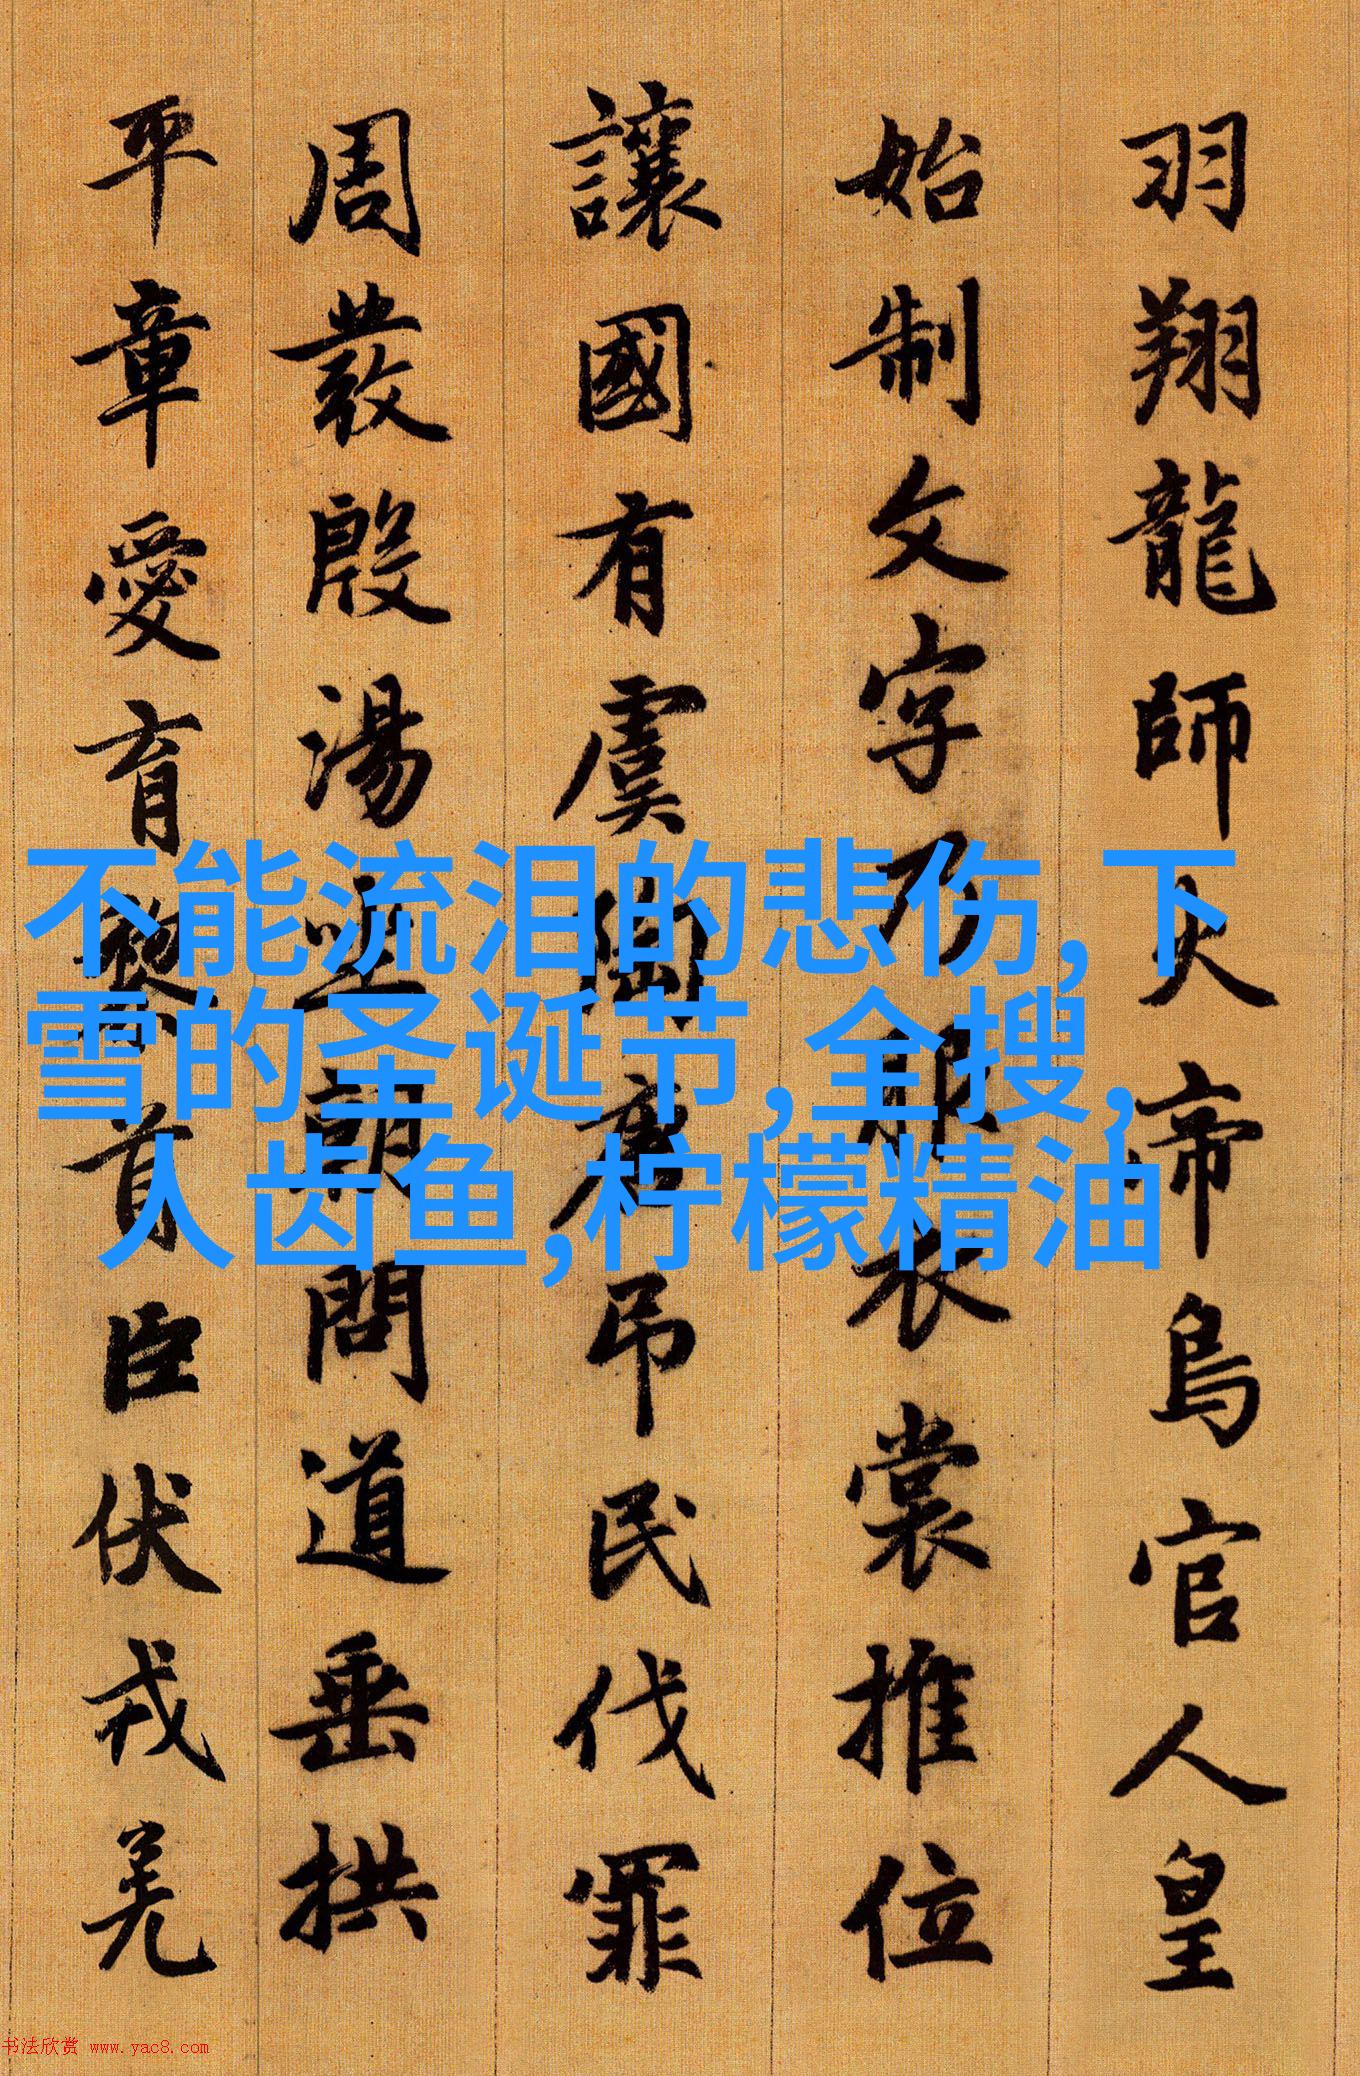 羽翔龍師火帝鳥官人皇
始制文字乃服衣裳推位
讓國有虞陶唐吊民伐罪
周發殷湯坐朝問道垂拱
平章愛育黎首臣伏戎羌
不能流泪的悲伤,下
雪的圣诞节,全搜,
人齿鱼,柠檬精油
书法欣赏 www.yac8.com